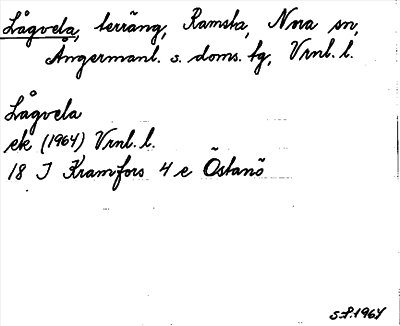 Lågvela, terräng, Ramsta, Nora sn,
Ångermanl. s. doms. tg, Vrnl. l.
Lågvela
ek (1964) Vrnl. l.
18 J Kramfors 4 e Östanö
S.P. 1964